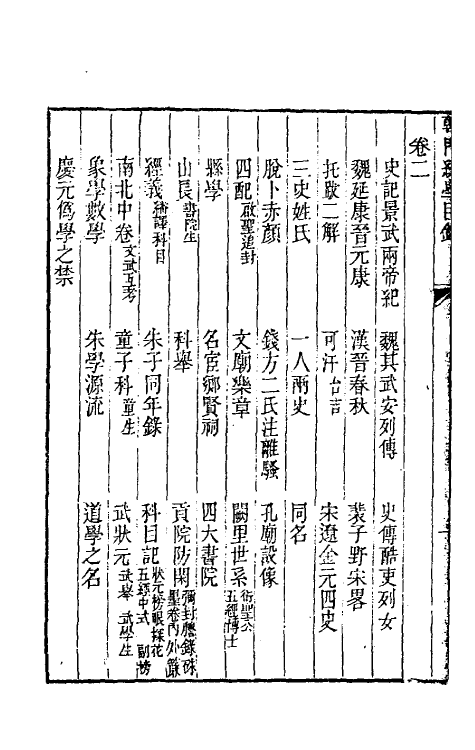 卷二
史記景武兩帝紀 魏其武安列傳 史傳酷吏列女
魏延康晉元康 漢晉春秋 裴子野宋畧
托跋二解 可汗台吉 宋遼金元四史
三史姓氏 一人兩史 同名
脫卜赤顏 錢方二氏注離騷 孔廟設像
四配啟聖追封 文廟樂章 闕里世系衍聖公五經博士
縣學 名宦鄉賢祠 四大書院
山長書院生 科舉 貢院防閑彌封謄錄硃墨卷內外簾
經義繙譯科目 朱子同年錄 科目記狀元榜眼探花五經中式副榜
南北中卷文武互考 童子科童生 武狀元武舉武學生
象學數學 朱學源流 道學之名
慶元僞學之禁